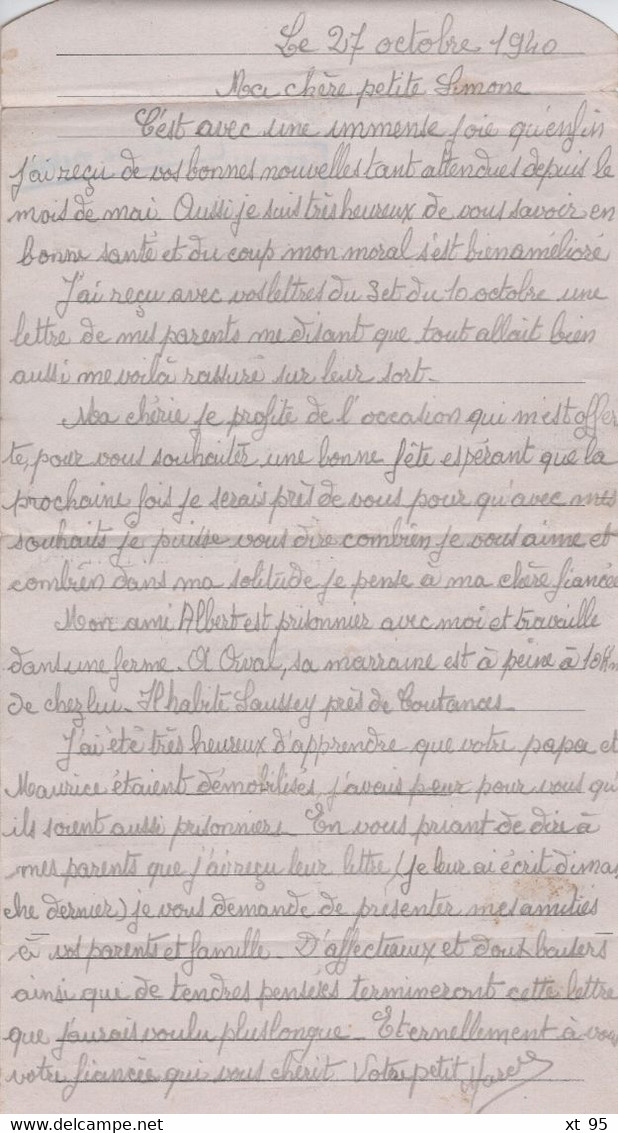 Le 27 octobre 1940
Ma chère petite Simone
C'est avec une immense joie qu'enfin
j'ai reçu de vos bonnes nouvelles tant attendues depuis le
mois de mai. Aussi je suis très heureux de vous savoir en
bonne santé et du coup mon moral s'est bien amélioré
J'ai reçu avec vos lettres du 3 et du 10 octobre une
lettre de mes parents me disant que tout allait bien
aussi me voilà rassuré sur leur sort.
Ma chérie je profite de l'occasion qui m'est offer
te, pour vous souhaiter une bonne fête espérant que la
prochaine fois je serais près de vous pour qu'avec mes
souhaits je puisse vous dire combien je vous aime et
combien dans ma solitude je pense à ma chère fiancée
Mon ami Albert est prisonnier avec moi et travaille
dans une ferme. A Orval, sa marraine est à peine à 10 Km
de chez lui. Il habite Saussey près de Coutances.
J'ai été très heureux d'apprendre que votre papa et
Maurice étaient démobilisés, j'avais peur pour vous qu'
ils soient aussi prisonniers. En vous priant de dire à
mes parents que j'ai reçu leur lettre (je leur ai écrit diman
che dernier) je vous demande de présenter mes amitiés
à vos parents et famille. D'affectueux et doux baisers
ainsi que de tendres pensées termineront cette lettre
que j'aurais voulu plus longue. Eternellement à vous
votre fiancée qui vous chérit Votre petit Marcel
xt 95